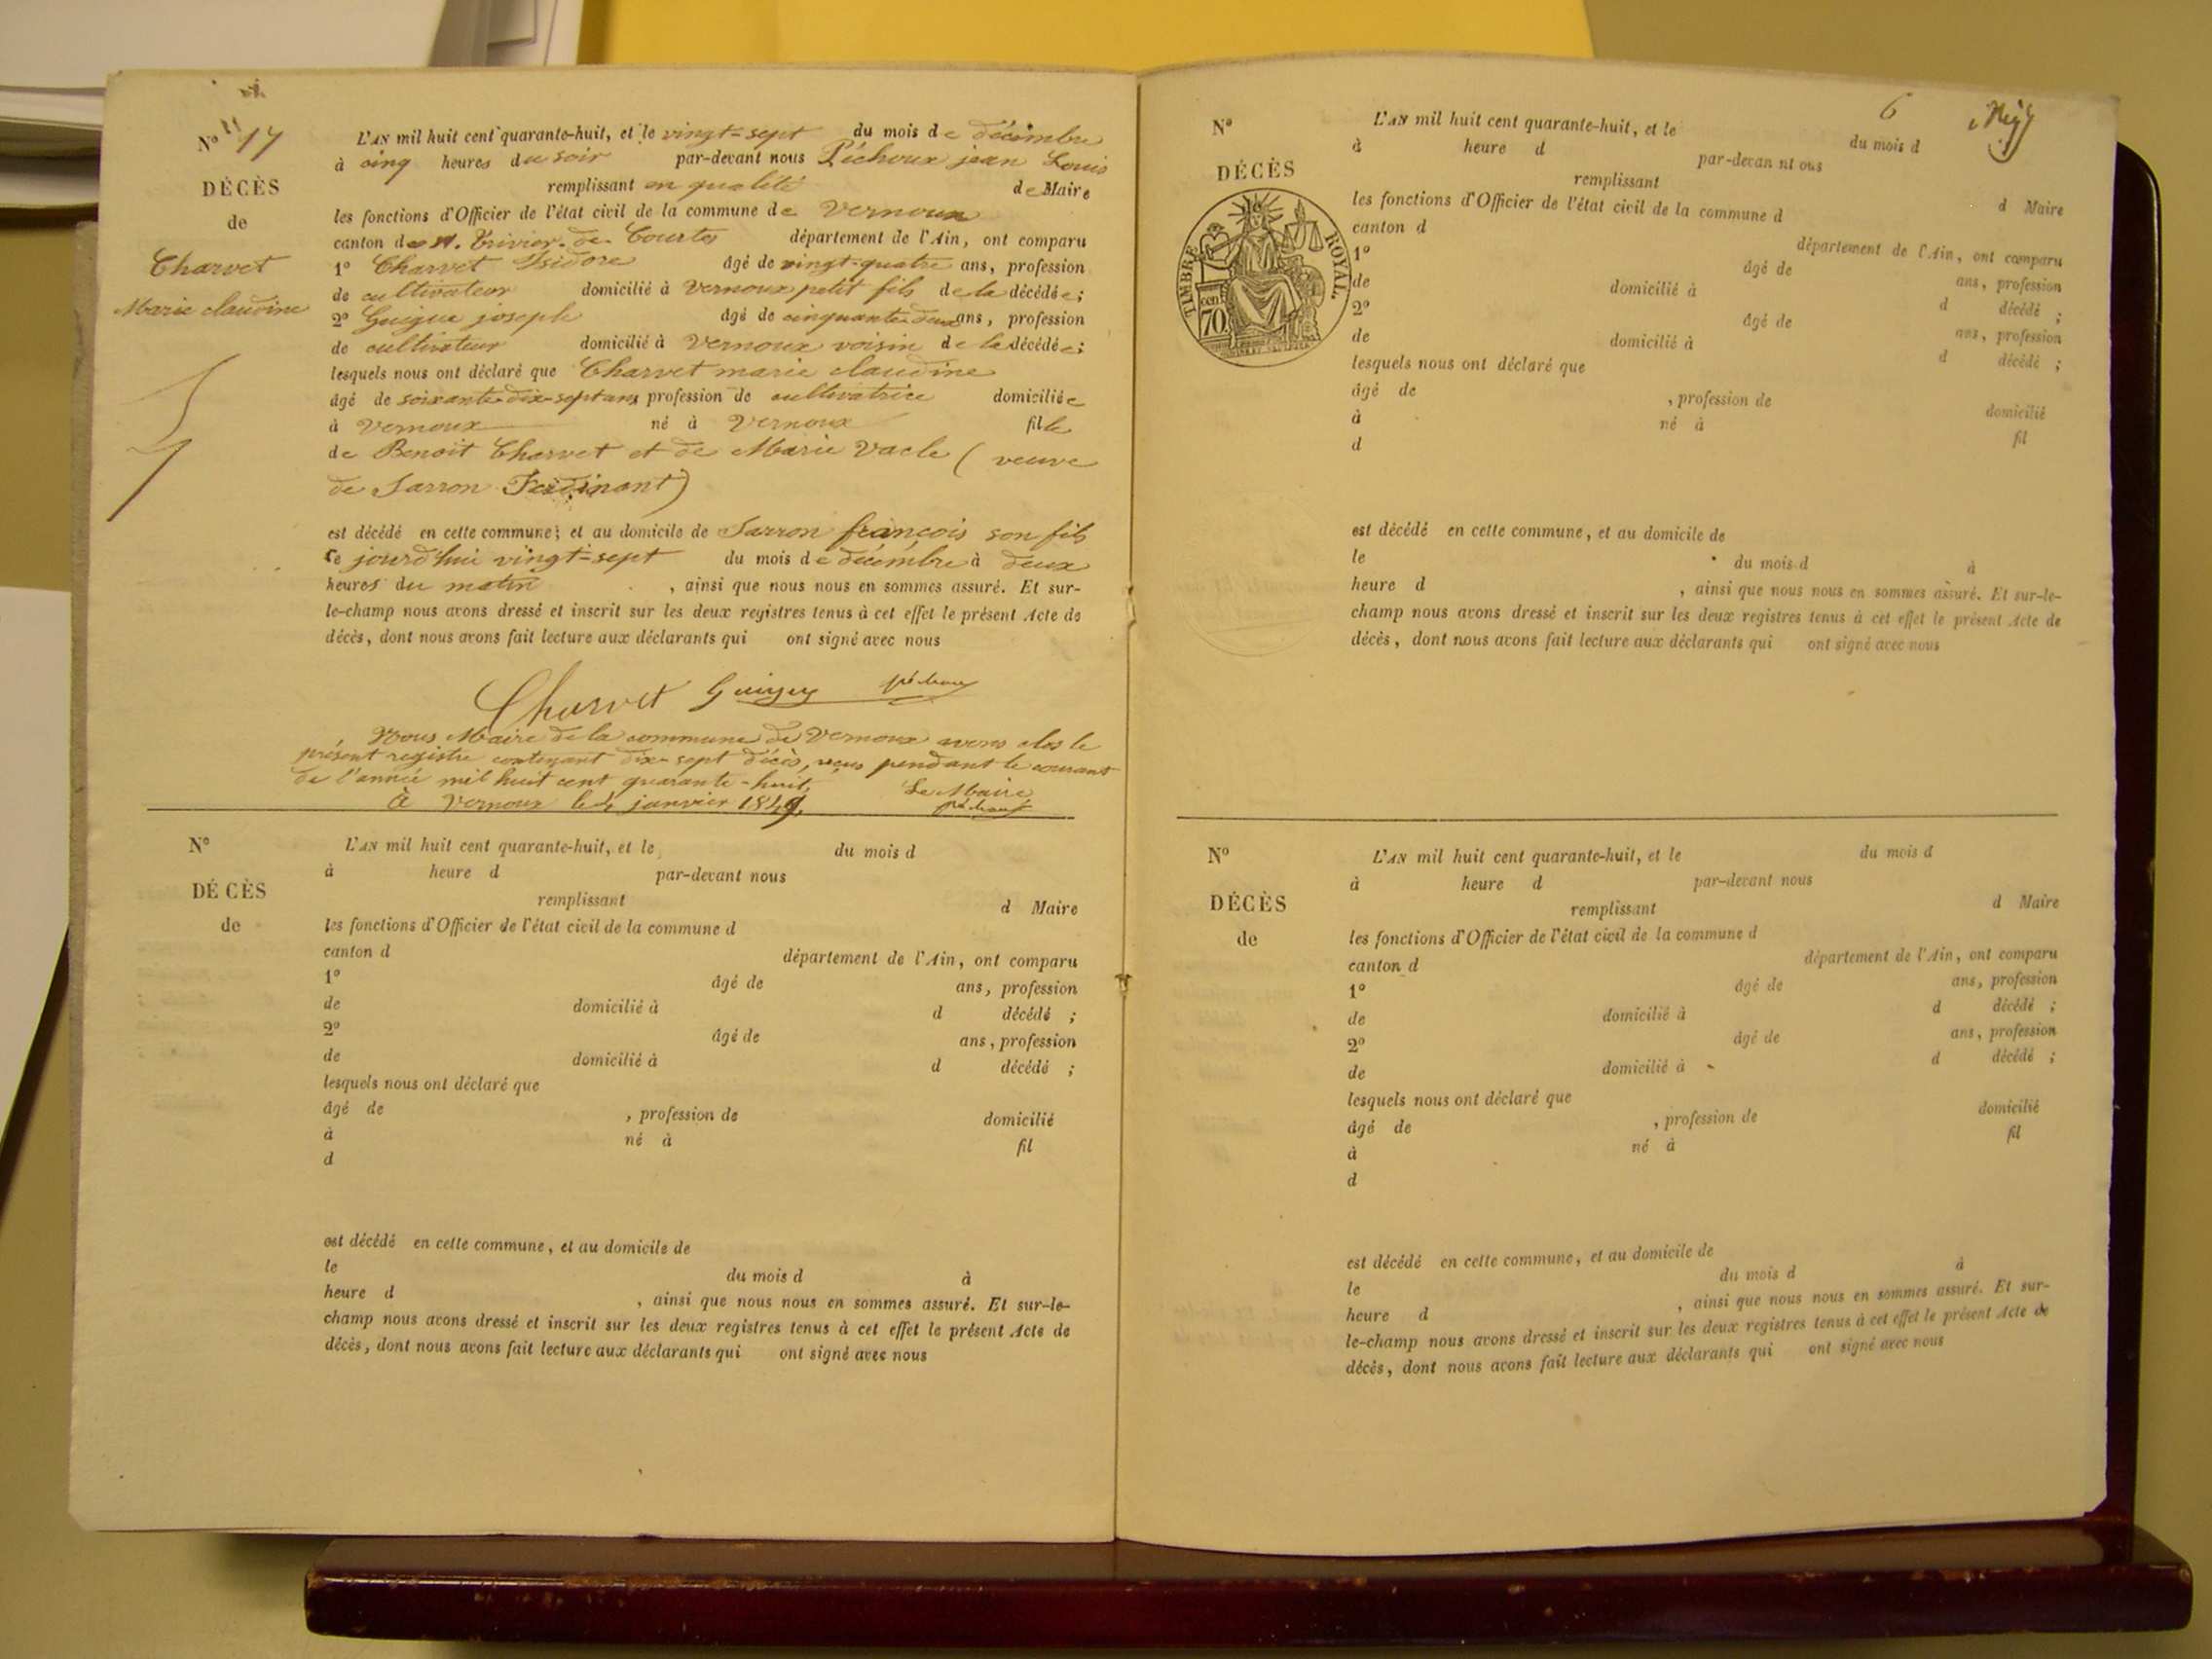 Nº 17
DÉCÈS
de
Charvet
Marie claudine
L'AN mil huit cent quarante-huit, et le vingt-sept du mois de décembre
à cinq heures du soir par-devant nous Péchoux jean Louis
remplissant en qualité de Maire
les fonctions d'Officier de l'état civil de la commune de Vernoux
canton de st. Trivier-de-Courtes département de l'Ain, ont comparu
1º Charvet Isidore âgé de vingt-quatre ans, profession
de cultivateur domicilié à Vernoux petit fils de la décédée;
2º Guigue joseph âgé de cinquante-deux ans, profession
de cultivateur domicilié à Vernoux voisin de la décédée;
lesquels nous ont déclaré que Charvet marie claudine
âgé de soixante-dix-sept ans profession de cultivatrice domiciliée
à Vernoux né à Vernoux fille
de Benoit Charvet et de Marie Vacle ( veuve
de Sarron Ferdinant)
est décédé en cette commune; et au domicile de Sarron françois son fils
ce jourd'hui vingt-sept du mois de décémbre à deux
heures du matin , ainsi que nous nous en sommes assuré. Et sur-
le-champ nous avons dressé et inscrit sur les deux registres tenus à cet effet le présent Acte de
décès, dont nous avons fait lecture aux déclarants qui ont signé avec nous
Charvet Guigue péchoux
Nous Maire de la commune de Vernoux avons clos le
présent registre contenant dix-sept décès, reçus pendant le courant
de l'année mil huit cent quarante-huit,
À Vernoux le janvier 1849. Le Maire
péchoux
Nº
DÉCÈS
de
L'AN mil huit cent quarante-huit, et le du mois d
à heure d par-devant nous
remplissant d Maire
les fonctions d'Officier de l'état civil de la commune d
canton d département de l'Ain, ont comparu
1º âgé de ans, profession
de domicilié à d décédé ;
2º âgé de ans, profession
de domicilié à d décédé ;
lesquels nous ont déclaré que
âgé de , profession de domicilié
à né à fil
d
est décédé en cette commune, et au domicile de
le du mois d à
heure d , ainsi que nous nous en sommes assuré. Et sur-le-
champ nous avons dressé et inscrit sur les deux registres tenus à cet effet le présent Acte de
décès, dont nous avons fait lecture aux déclarants qui ont signé avec nous
6
Nº
DÉCÈS
TIMBRE ROYAL.
70 cen
L'AN mil huit cent quarante-huit, et le du mois d
à heure d par-devan nt ous
remplissant d Maire
les fonctions d'Officier de l'état civil de la commune d
canton d département de l'Ain, ont comparu
1º âgé de ans, profession
de domicilié à d décédé ;
2º âgé de ans, profession
de domicilié à d décédé ;
lesquels nous ont déclaré que
âgé de , profession de domicilié
à né à fil
d
est décédé en cette commune, et au domicile de
le du mois d à
heure d , ainsi que nous nous en sommes assuré. Et sur-le-
champ nous avons dressé et inscrit sur les deux registres tenus à cet effet le présent Acte de
décès, dont nous avons fait lecture aux déclarants qui ont signé avec nous
Nº
DÉCÈS
de
L'AN mil huit cent quarante-huit, et le du mois d
à heure d par-devant nous
remplissant d Maire
les fonctions d'Officier de l'état civil de la commune d
canton d département de l'Ain, ont comparu
1º âgé de ans, profession
de domicilié à d décédé ;
2º âgé de ans, profession
de domicilié à d décédé ;
lesquels nous ont déclaré que
âgé de , profession de domicilié
à né à fil
d
est décédé en cette commune, et au domicile de
le du mois d à
heure d , ainsi que nous nous en sommes assuré. Et sur-
le-champ nous avons dressé et inscrit sur les deux registres tenus à cet effet le présent Acte de
décès, dont nous avons fait lecture aux déclarants qui ont signé avec nous